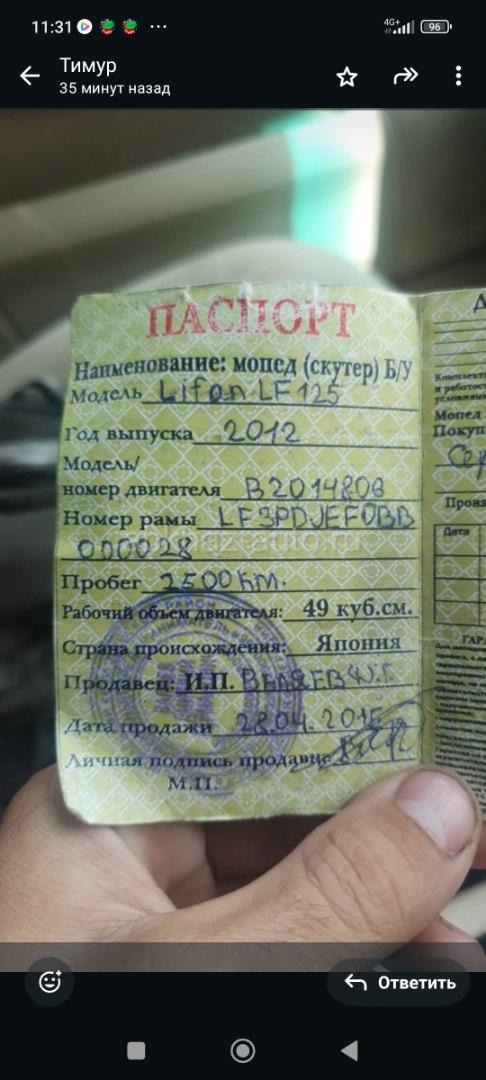 11:31
4G+
96
Тимур
35 минут назад
ПАСПОРТ
Наименование: мопед (скутер) Б/У
Модель Lifan LF125
Год выпуска 2012
Модель/
номер двигателя B2014806
Номер рамы LF3PDJEF0BB
000028
Пробег 2500 km.
Рабочий объем двигателя: 49 куб.см.
Страна происхождения: Япония
Продавец: И.П.
Дата продажи 28.04.
Личная подпись продавца
М.П.
Мопед
Дата
Ответить